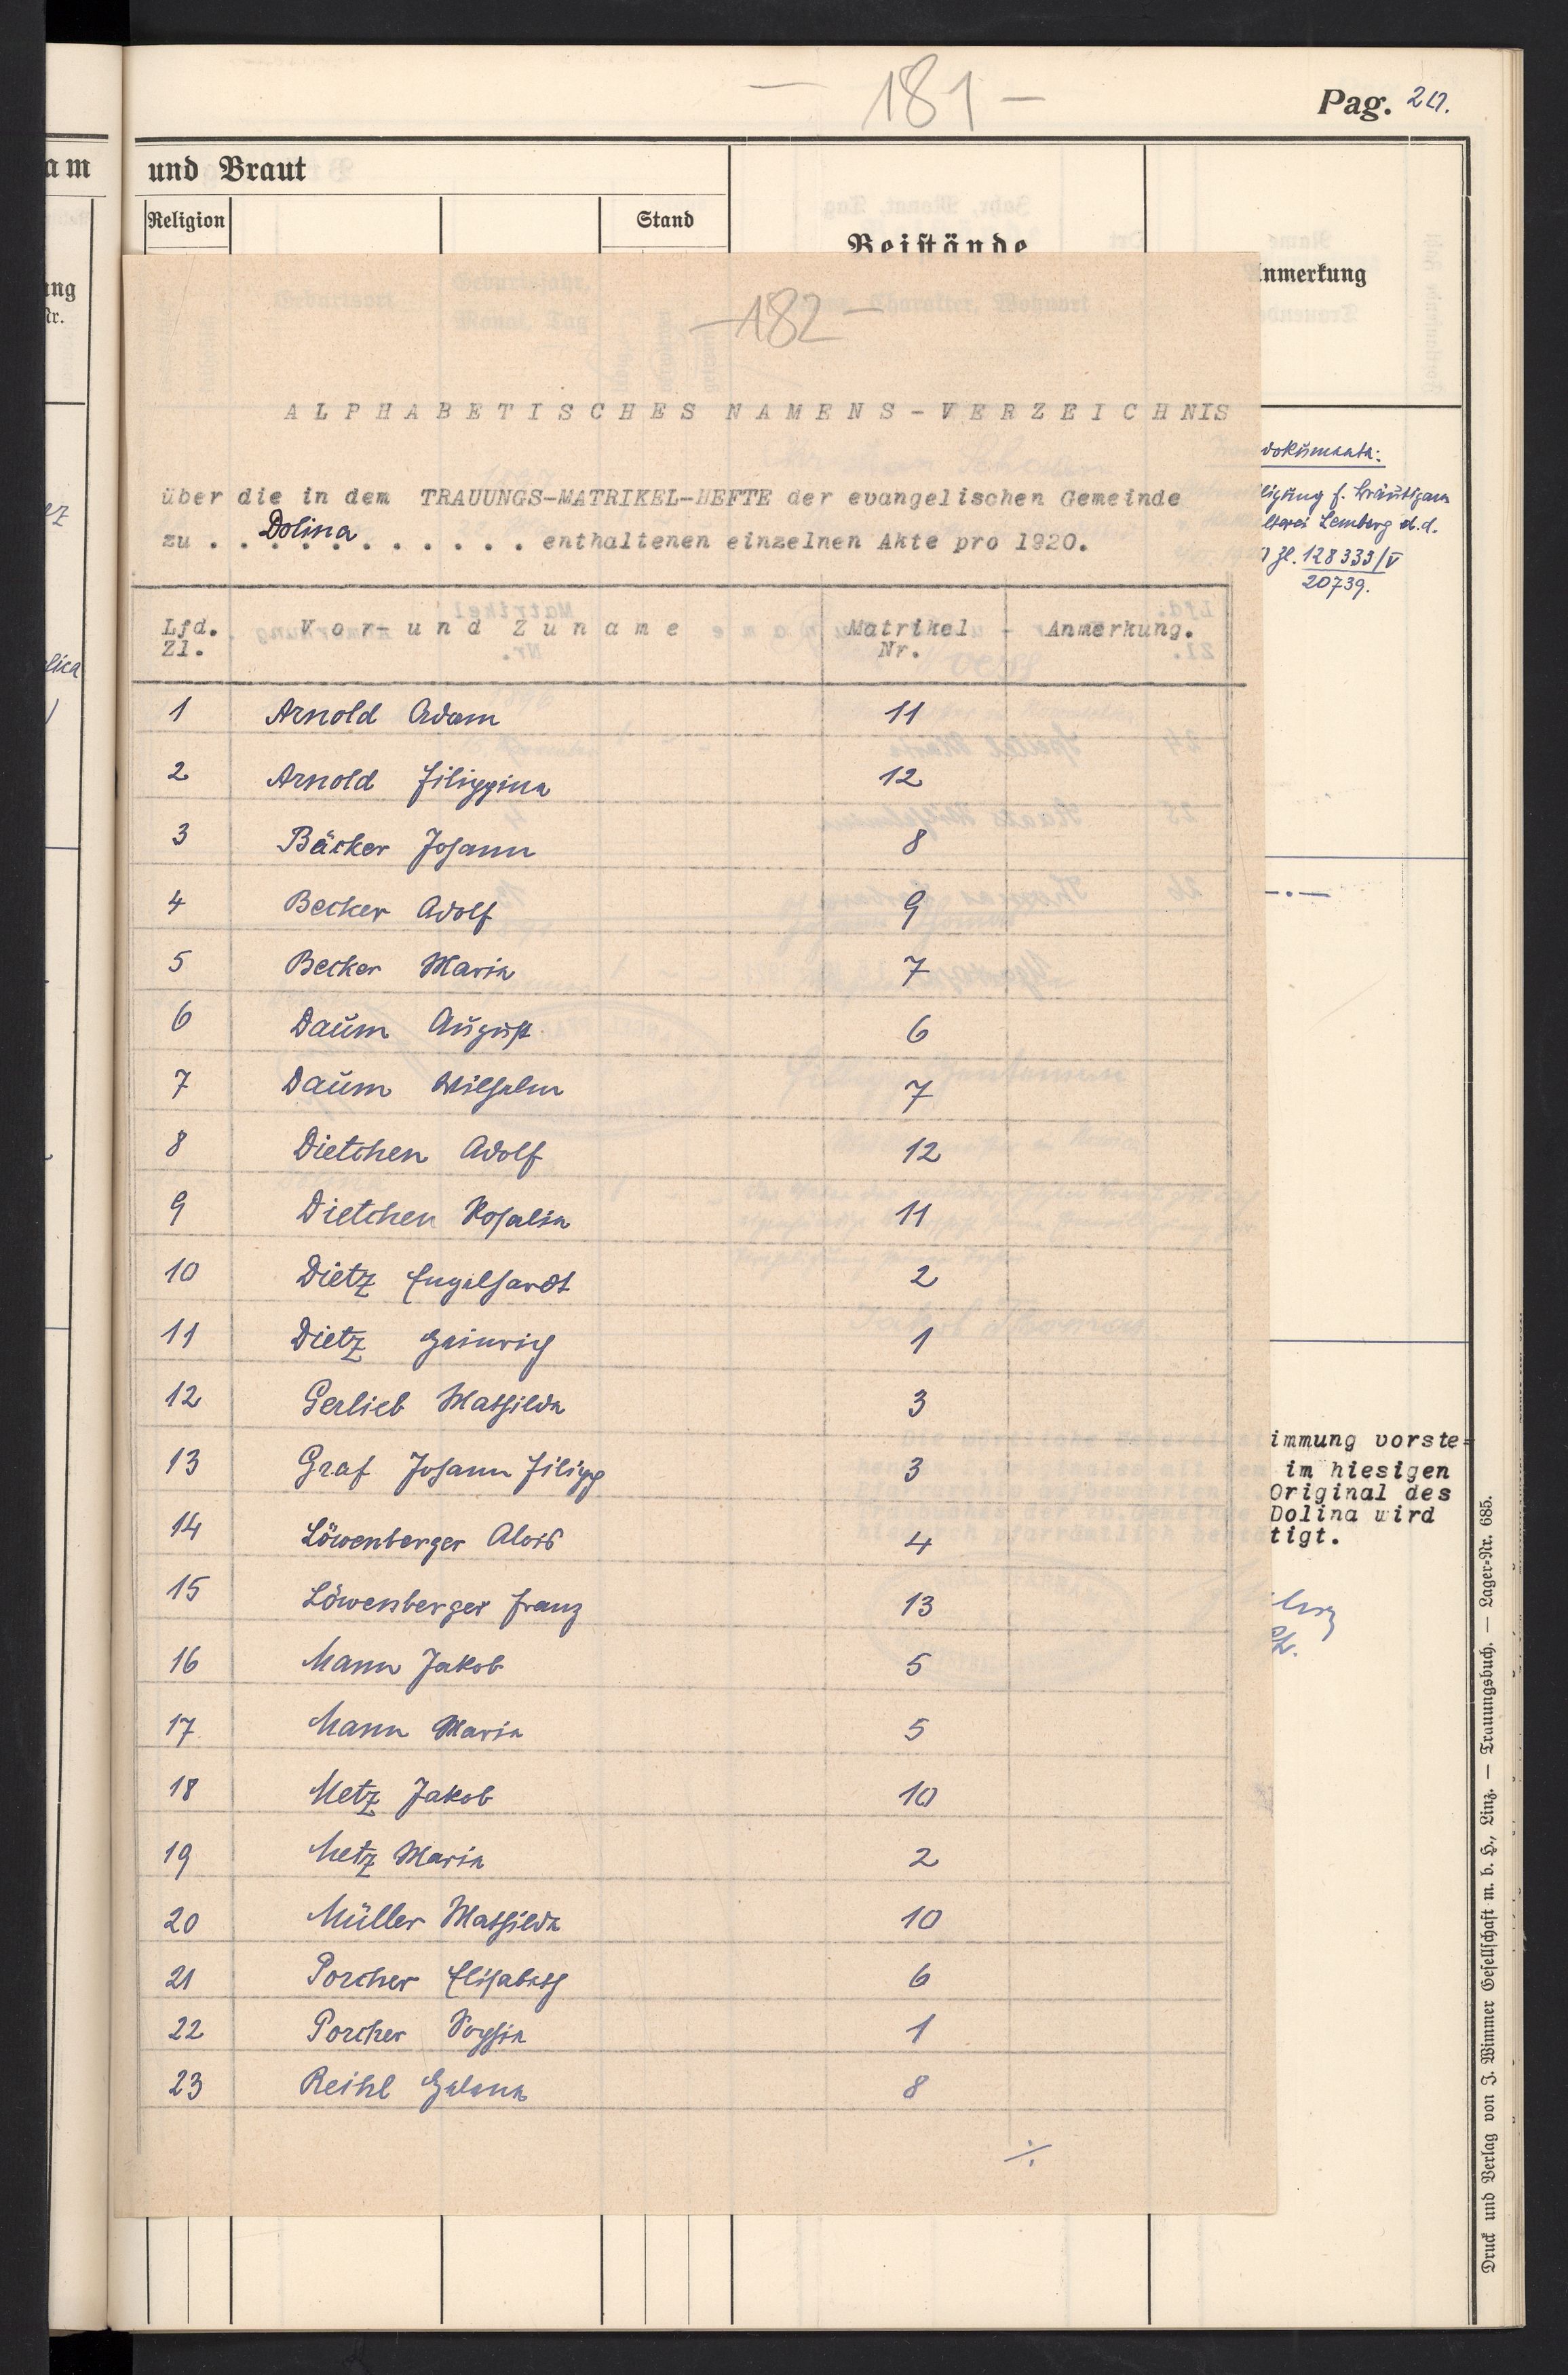 - 181 -
Pag. 20.
am und Braut
Religion Stand
Beistände
Anmerkung
ung
Nr.
-182-
ALPHABETISCHES NAMENS-VERZEICHNIS
über die in dem TRAUUNGS-MATRIKEL-HEFTE der evangelischen Gemeinde
zu . Dolina . . . . . . . . . . . enthaltenen einzelnen Akte pro 1920.
Lfd. Zl. Vor- und Zuname Matrikel Nr. Anmerkung.
1 Arnold Adam 11
2 Arnold Filippina 12
3 Bäcker Johann 8
4 Becker Adolf 9
5 Becker Maria 7
6 Daum August 6
7 Daum Wilhelm 7
8 Dietchen Adolf 12
9 Dietchen Rosalia 11
10 Dietz Engelhardt 2
11 Dietz Heinrich 1
12 Gerlieb Mathilda 3
13 Graf Johann Filipp 3
14 Löwenberger Alois 4
15 Löwenberger Franz 13
16 Mann Jakob 5
17 Mann Maria 5
18 Metz Jakob 10
19 Metz Maria 2
20 Müller Mathilda 10
21 Porcher Elisabeth 6
22 Porcher Sophia 1
23 Reihl Helena 8
./.
dokumente:
ligung f. Bräutigam
Lemberg d.d.
Zl. 128333/V
20739.
immung vorste=
im hiesigen
Original des
Dolina wird
tigt.
Druck und Verlag von J. Wimmer Gesellschaft m. b. H., Linz. — Trauungsbuch. — Lager-Nr. 685.